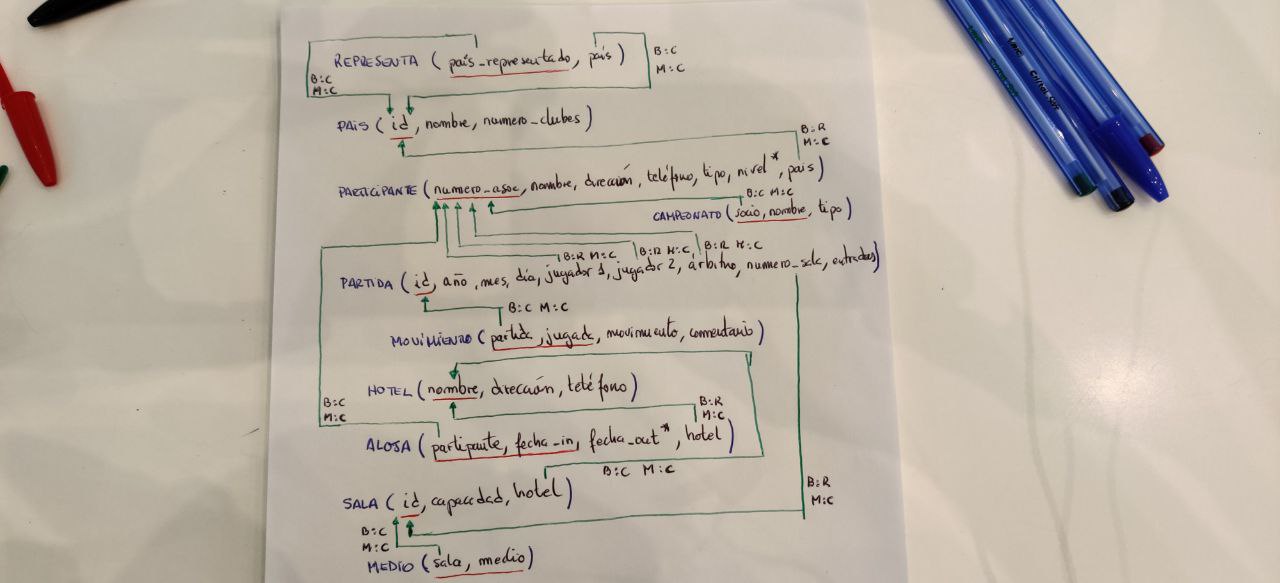 REPRESENTA (país_representado, país)
B:C
M:C
B:C
M:C
PAÍS (id, nombre, numero_clubes)
B:R
M:C
PARTICIPANTE (numero_asoc, nombre, dirección, teléfono, tipo, nivel*, país)
B:C M:C
CAMPEONATO (socio, nombre, tipo)
B:R M:C B:R M:C B:R M:C
PARTIDA (id, año, mes, día, jugador 1, jugador 2, árbitro, numero_sala, entradas)
B:C M:C
MOVIMIENTO (partida, jugada, movimiento, comentario)
HOTEL (nombre, dirección, teléfono)
B:C
M:C
B:R
M:C
ALOJA (partipante, fecha_in, fecha_out*, hotel)
B:C M:C
SALA (id, capacidad, hotel)
B:R
M:C
B:C
M:C
MEDIO (sala, medio)